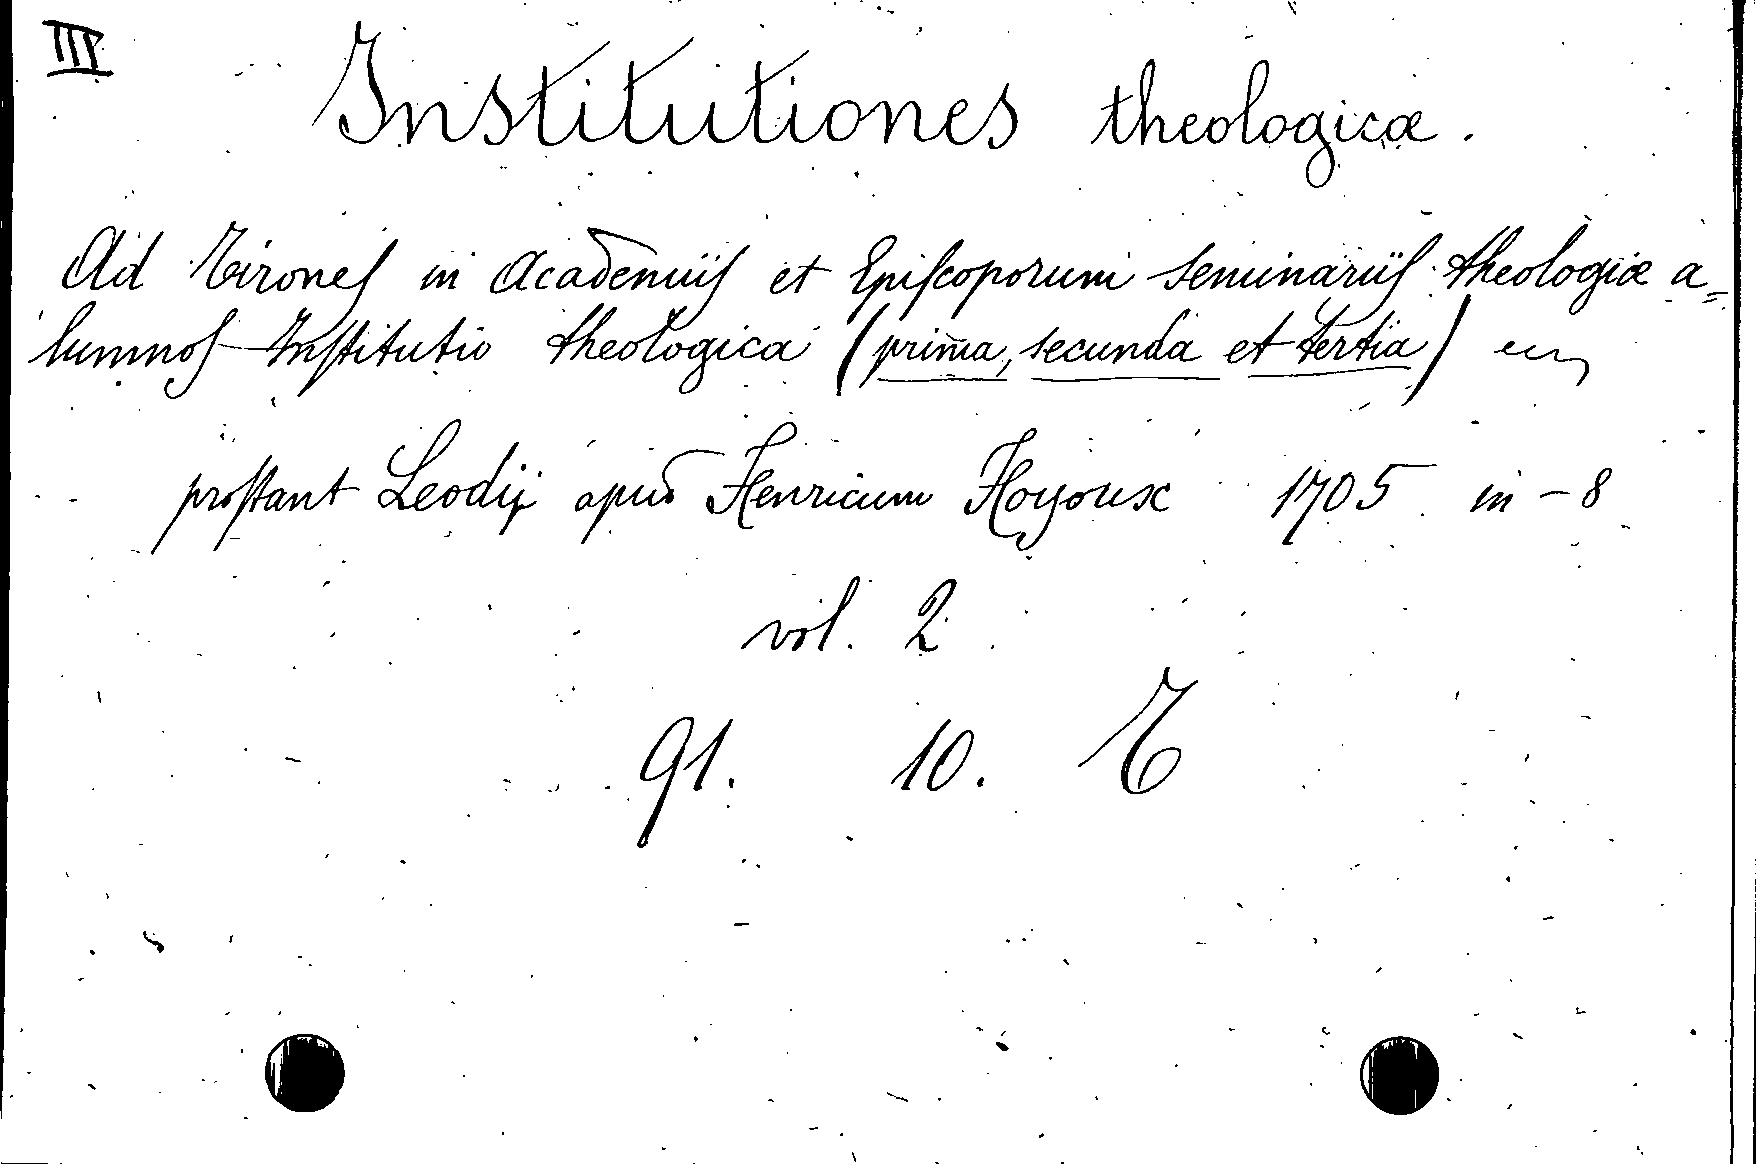 III
Institutiones theologicæ.
Ad Tirones in Academiis et Episcoporum seminariis theologiæ a=
lumnos Institutio theologica (prima, secunda et tertia)
prostant Leodij apud Henricum Hoyoux 1705 in-8
vol. 2
91. 10. T